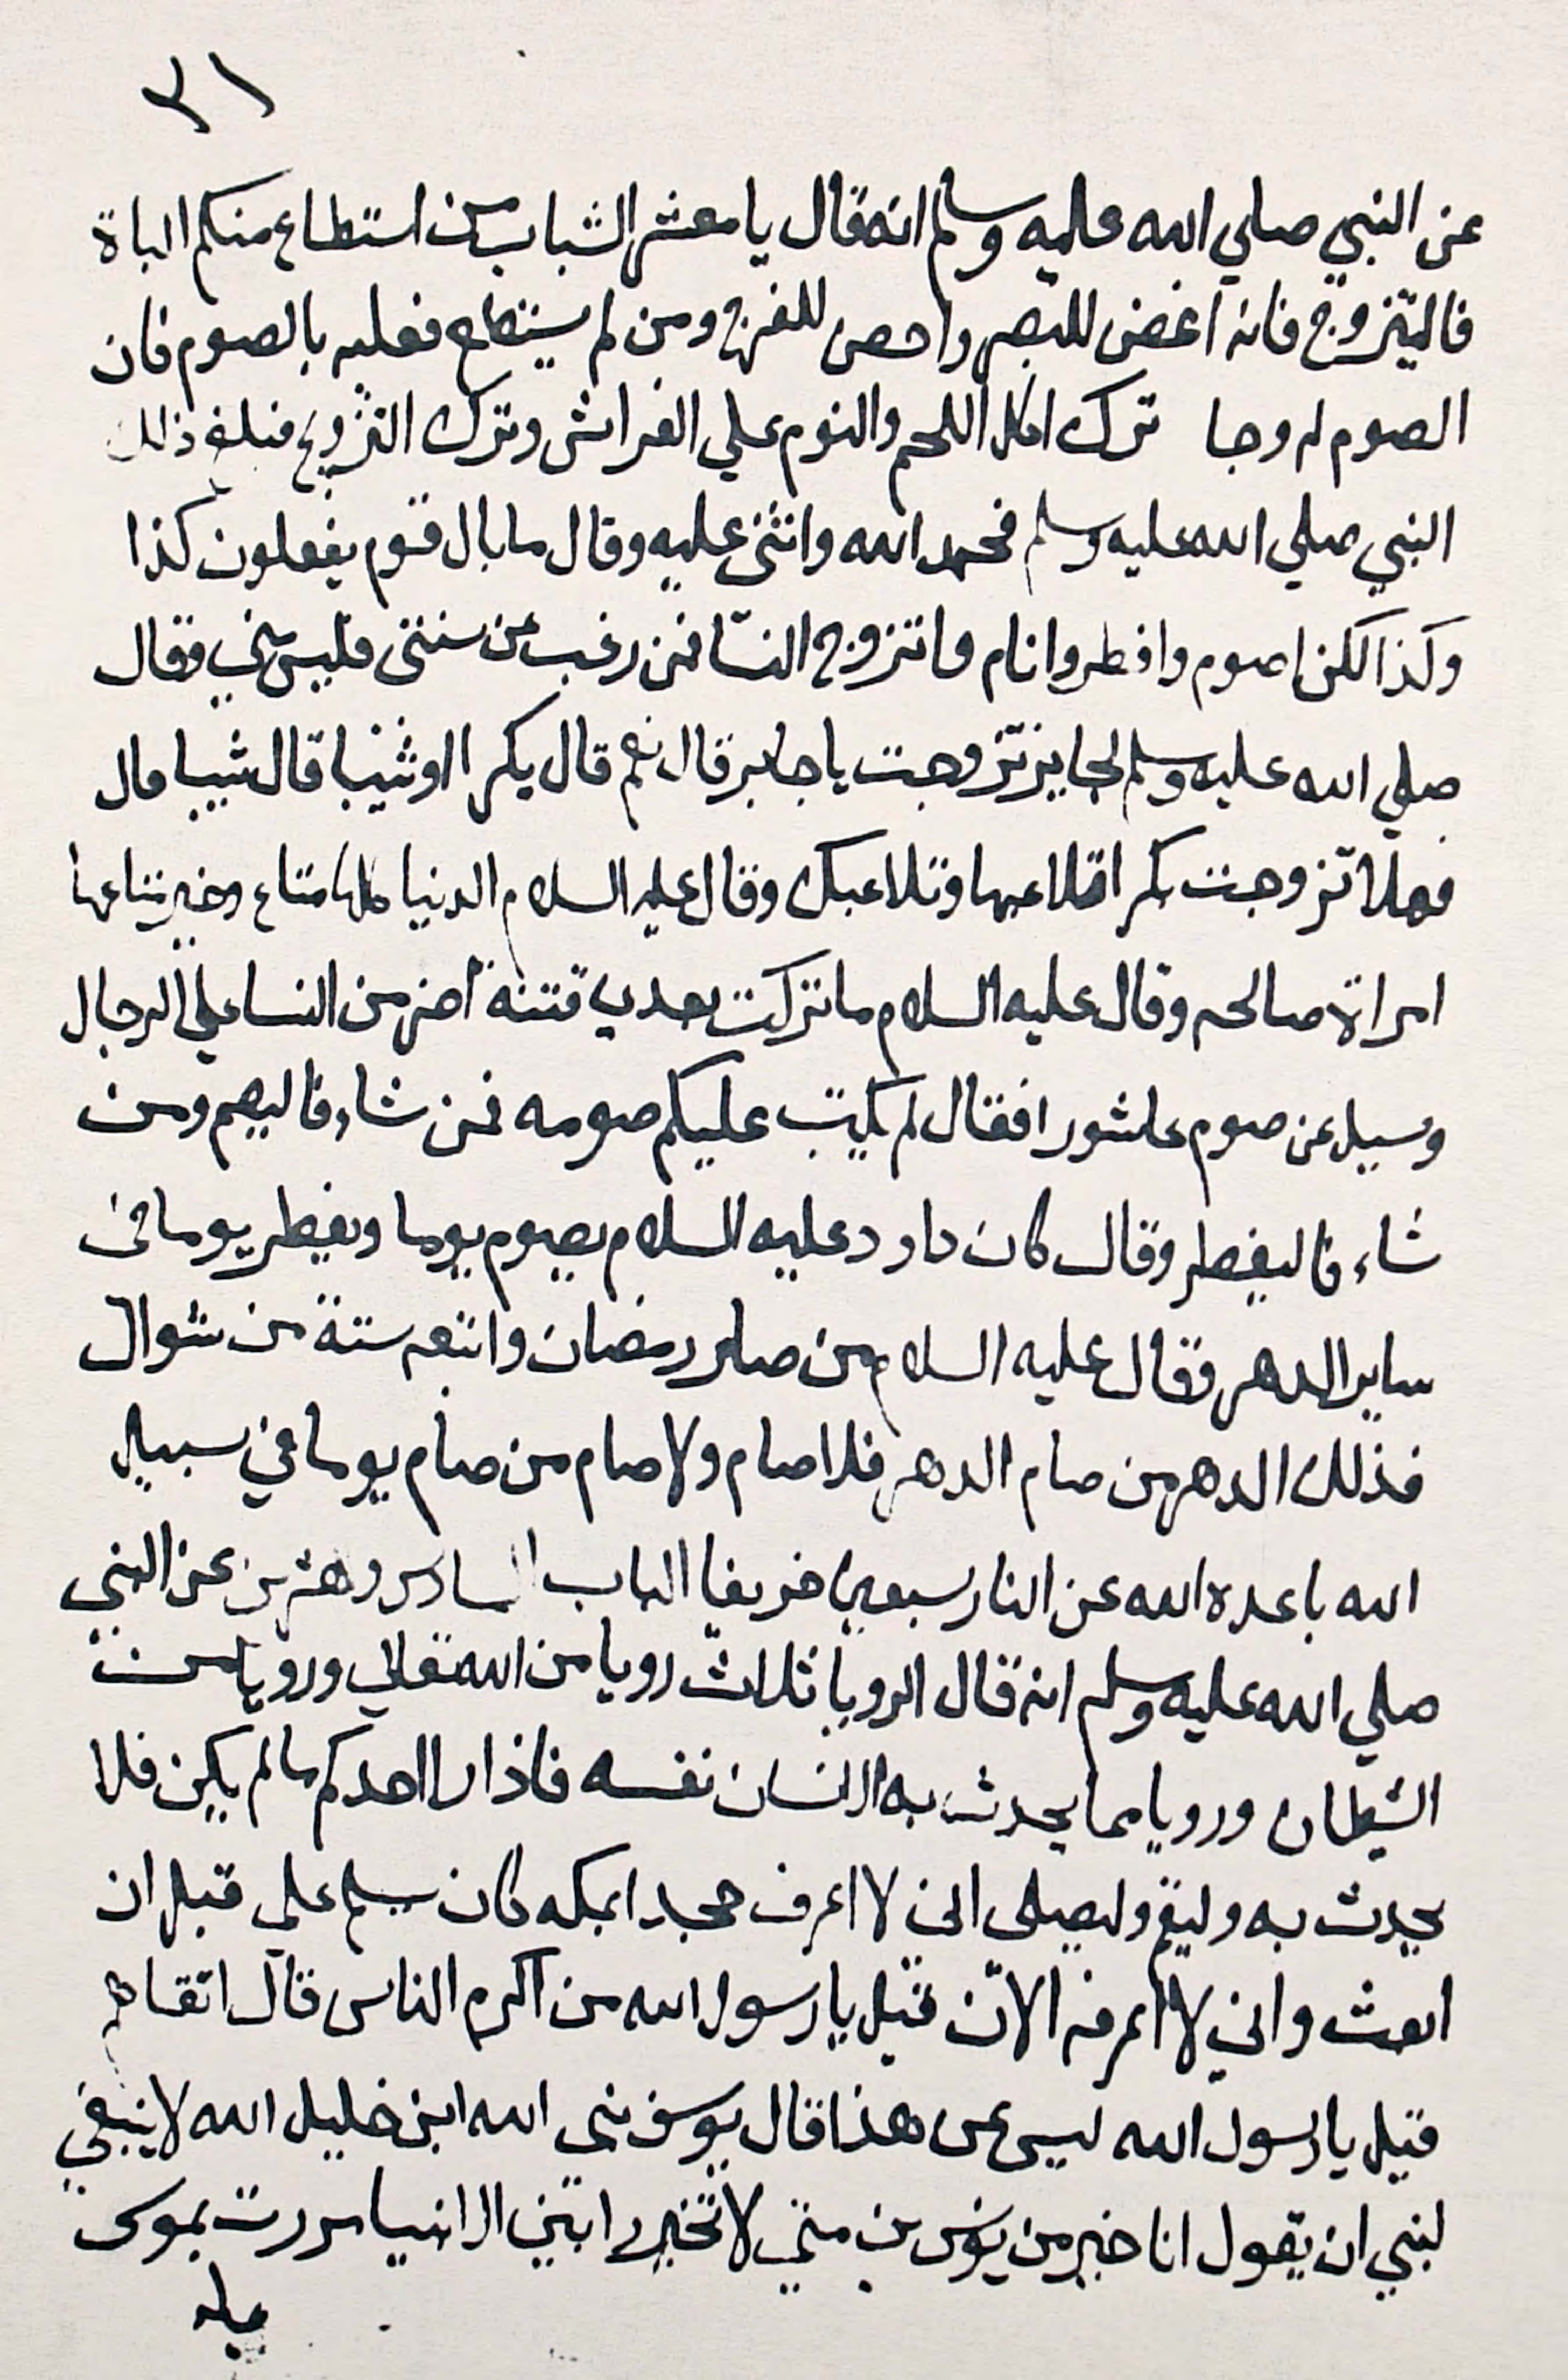 ٣١
عن النبي صلي الله عليه وسلم انه قال يا معشر الشباب من استطاع منكم الباة
فاليتزوج فانه اغض للبصر واحصن للفرج ومن لم يستطع فعليه بالصوم فان
الصوم له وجا ترك اكل اللحم والنوم علي الفراش وترك التزويج فبلغ ذلك
النبي صلي الله عليه وسلم فحمد الله واثنى عليه وقال ما بال قوم يفعلون كذا
وكذا لكن اصوم وافطر وانام واتزوج النسا فمن رغب عن سنتى فليس مني وقال
صلي الله عليه وسلم لجابر تزوجت يا جابر قال نعم قال بكرا او ثيبا قال ثيبا قال
فهلا تزوجت بكرا تلاعبها وتلاعبك وقال عليه السلام الدنيا كلها متاع وخير متاعها
امراة صالحه وقال عليه السلام ما تركت بعدي فتنة اضر من النسا علي الرجال
وسيل عن صوم عاشورا فقال لم يكتب عليكم صومه فمن شاء فاليصم ومن
شاء فاليفطر وقال كان داود عليه السلام يصوم يوما ويفطر يوما في
ساير الدهر فقال عليه السلام من صام رمضان واتبعه ستة من شوال
فذلك الدهر من صام الدهر فلا صام ولا صام من صام يوما في سبيل
الله باعده الله عن النار سبعين خريفا الباب السادس وعشرين عن النبي
صلي الله عليه وسلم انه قال الرويا ثلاث رويا من الله تعالي ورويا من
الشيطان ورويا مما يحدث به الانسان نفسه فاذا راا احدكم ما لم يكن فلا
يحدث به وليقم وليصلى اني لا اعرف حجرا بمكه كان يسلم علي قبل ان
ابعث واني لا اعرفه الان قيل يا رسول الله من اكرم الناس قال اتقاهم
قيل يا رسول الله ليس عن هذا قال يوسف نبي الله ابن خليل الله لا ينبغي
لنبي ان يقول انا خير من يونس بن متي لا تخيروا بين الانبيا مررت بموسى
عليه